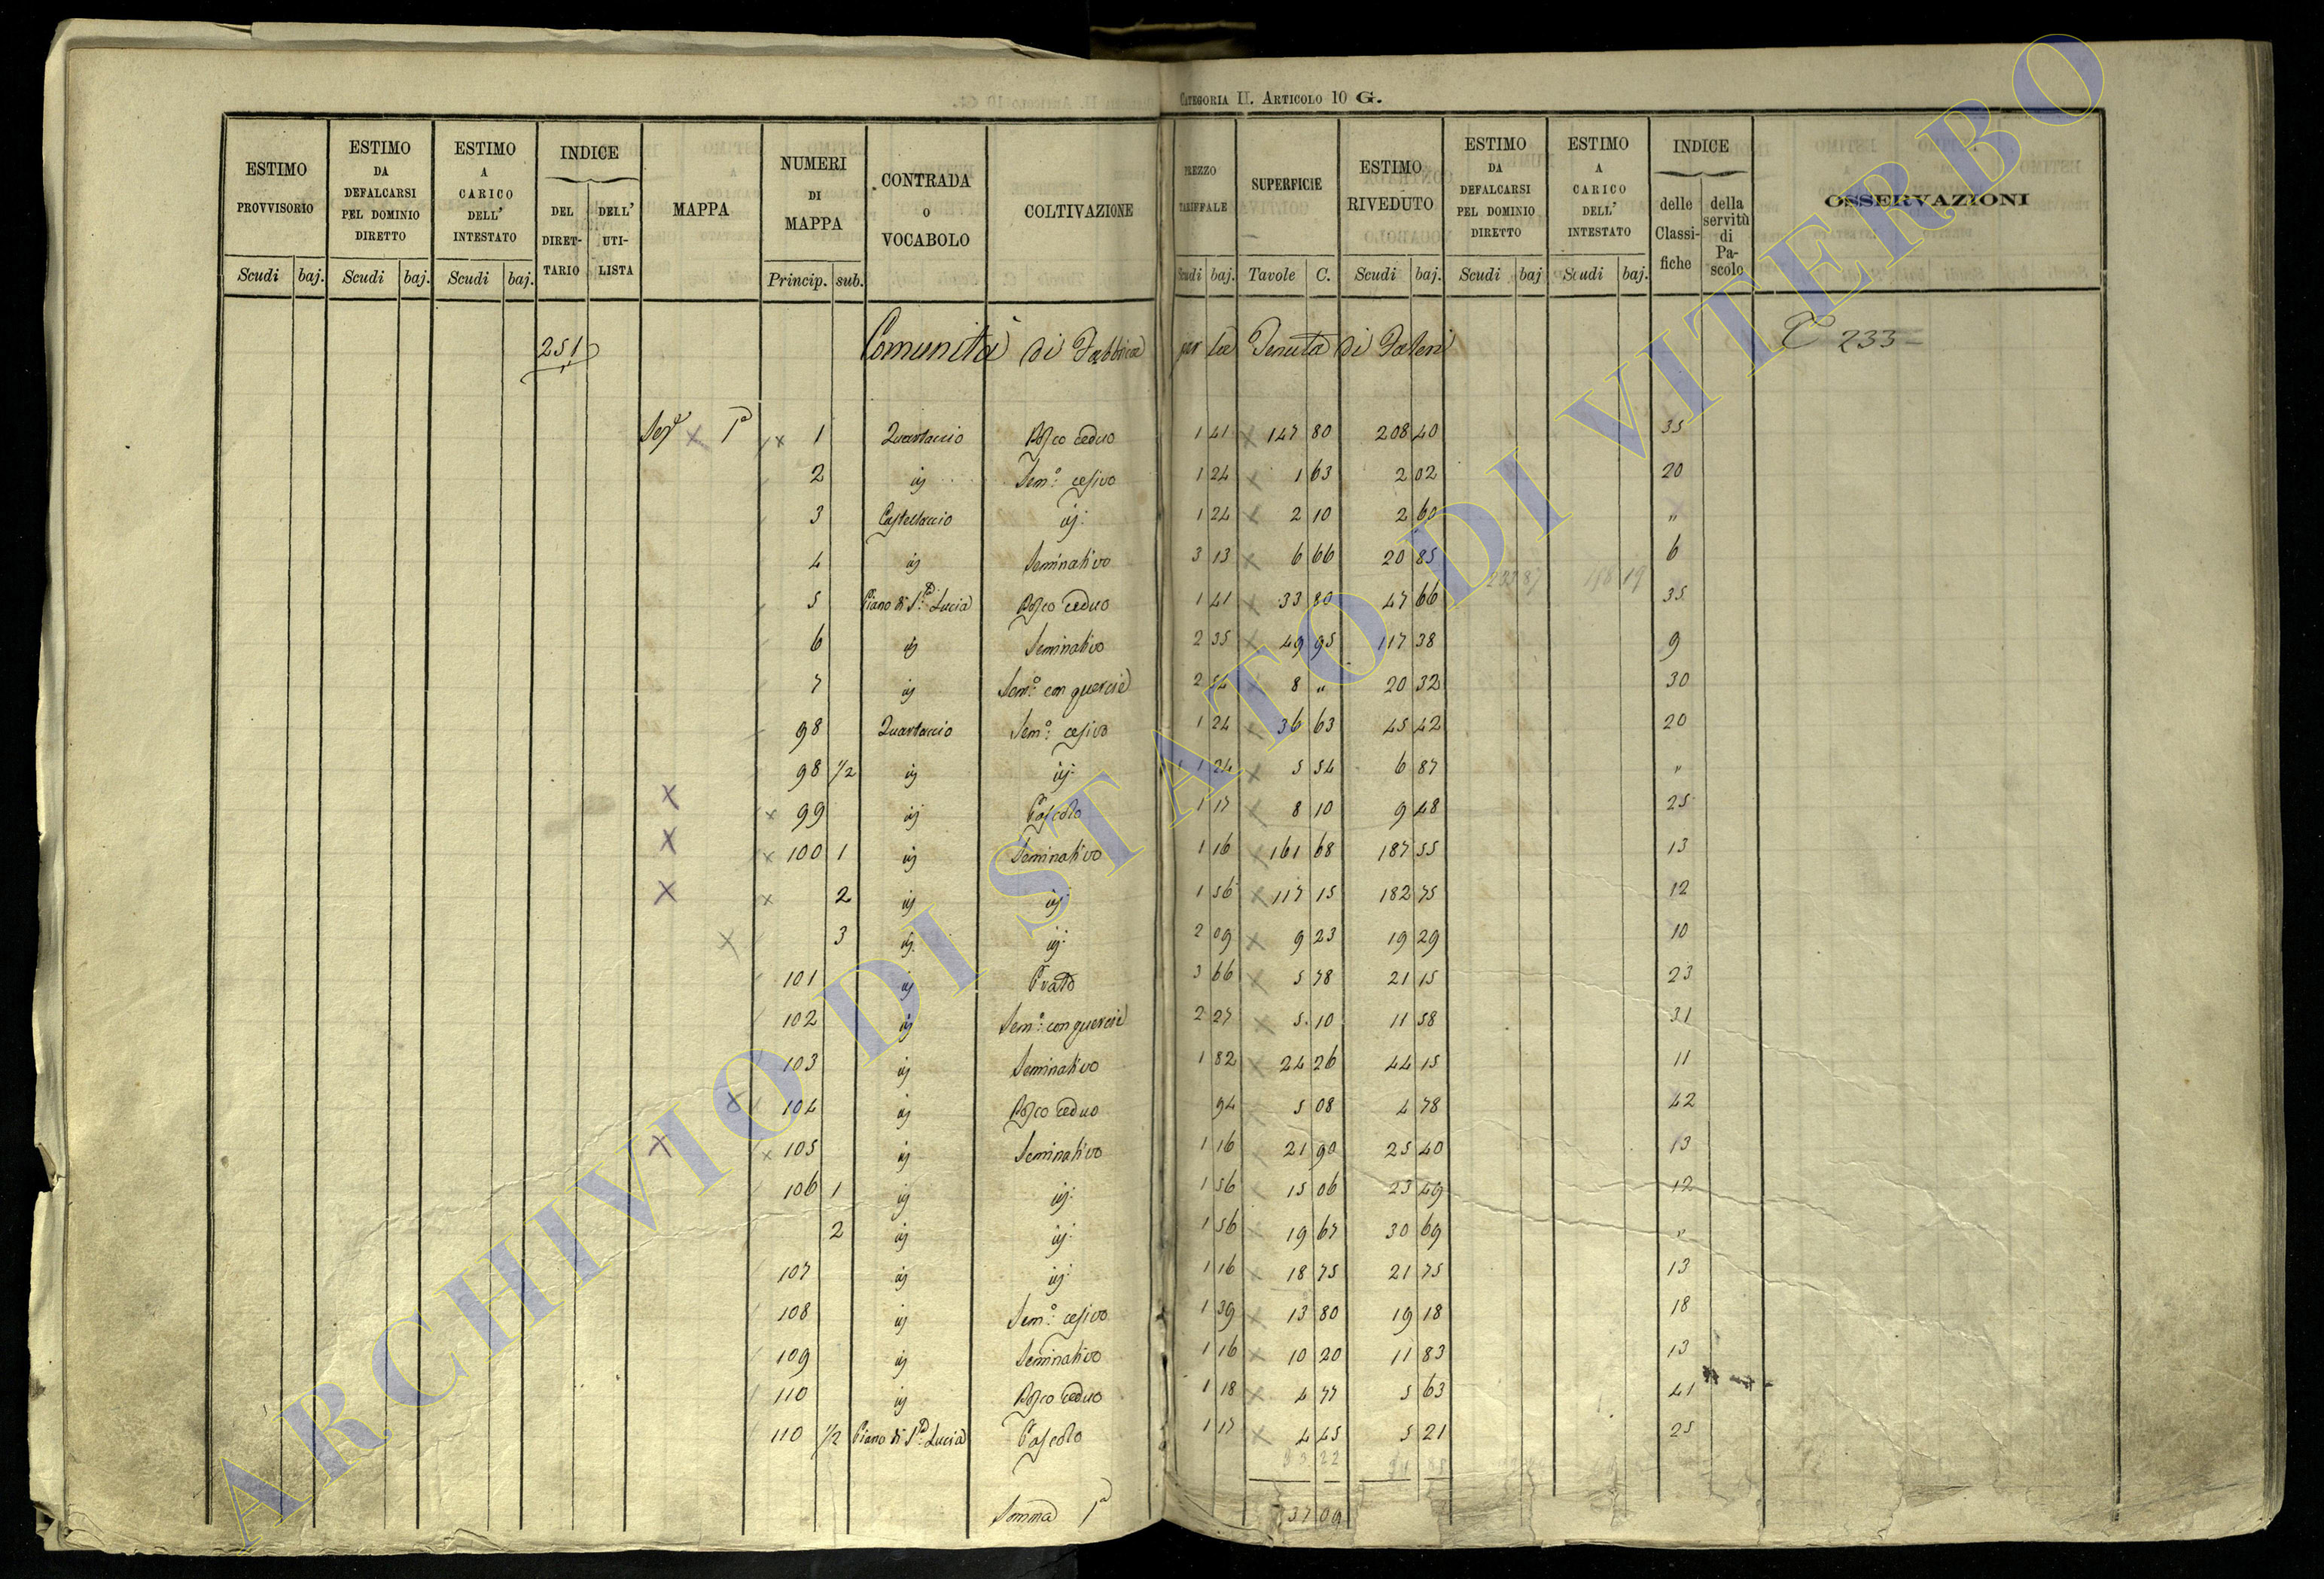 CATEGORIA II. ARTICOLO 10 G.
ESTIMO PROVVISORIO Scudi baj. ESTIMO DA DEFALCARSI PEL DOMINIO DIRETTO Scudi baj. ESTIMO A CARICO DELL' INTESTATO Scudi baj. INDICE DEL DIRETTARIO DELL' UTILISTA MAPPA NUMERI DI MAPPA Princip. sub. CONTRADA O VOCABOLO COLTIVAZIONE PREZZO TARIFFALE Scudi baj. SUPERFICIE Tavole C. ESTIMO RIVEDUTO Scudi baj. ESTIMO DA DEFALCARSI PEL DOMINIO DIRETTO Scudi baj ESTIMO A CARICO DELL' INTESTATO Scudi baj. INDICE delle Classifiche della servitù di Pascolo OSSERVAZIONI
251 Comunità di Fabbrica per la Tenuta di Faleri 233
Sez.e 1a 1 Quartaccio Bosco ceduo 1 41 147 80 208 40 35
2 id Sem.o cesivo 1 24 1 63 2 02 20
3 Castellaccio id: 1 24 2 10 2 60 "
4 id Seminativo 3 13 6 66 20 85 6
233 87 19
5 Piano di S.a Lucia Bosco ceduo 1 41 33 80 47 66 35
6 id Seminativo 2 35 49 95 117 38 9
7 id Sem.o con quercie 2 54 8 " 20 32 30
98 Quartaccio Sem.o cesivo 1 24 36 63 45 42 20
98 1/2 id id: 1 24 5 54 6 87 "
99 id Pascolo 1 17 8 10 9 48 25
100 1 id Seminativo 1 16 161 68 187 55 13
2 id id: 1 56 117 15 182 75 12
3 id. id: 2 09 9 23 19 29 10
101 id Prato 3 66 5 78 21 15 23
102 id Sem.o con quercie 2 27 5 10 11 58 31
103 id Seminativo 1 82 24 26 44 15 11
104 id Bosco ceduo 94 5 08 4 78 42
105 id Seminativo 1 16 21 90 25 40 13
106 1 id id: 1 56 15 06 23 49 12
2 id id: 1 56 19 67 30 69 "
107 id id: 1 16 18 75 21 75 13
108 id Sem.o cesivo 1 39 13 80 19 18 18
109 id Seminativo 1 16 10 20 11 83 13
110 id Bosco ceduo 1 18 4 77 5 63 41
110 1/2 Piano di S.a Lucia Pascolo 1 17 4 45 5 21 25
Somma 1a 37 09
ARCHIVIO DI STATO DI VITERBO